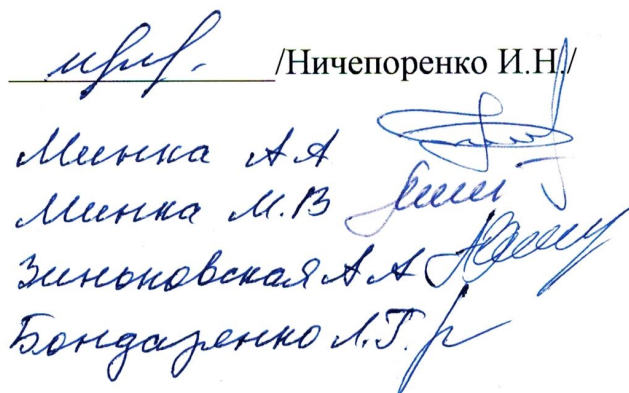 /Ничепоренко И.Н./
Минка А А
Минка М.В
Зиньковская А А
Бондаренко Л.Г.